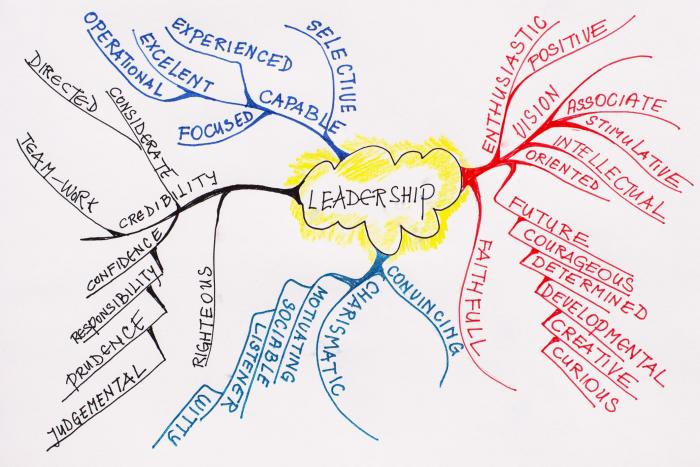 LEADERSHIP
SELECTIVE
CAPABLE
EXPERIENCED
EXCELENT
OPERATIONAL
FOCUSED
CREDIBILITY
CONSIDERATE
DIRECTED
TEAM-WORK
CONFIDENCE
RESPONSIBILITY
PRUDENCE
JUDGEMENTAL
RIGHTEOUS
CONVINCING
CHARISMATIC
MOTIVATING
SOCIABLE
LISTENER
WITTY
ENTHUSIASTIC
POSITIVE
VISION
ASSOCIATE
STIMULATIVE
INTELLECTUAL
ORIENTED
FUTURE
COURAGEOUS
DETERMINED
DEVELOPMENTAL
CREATIVE
CURIOUS
FAITHFULL